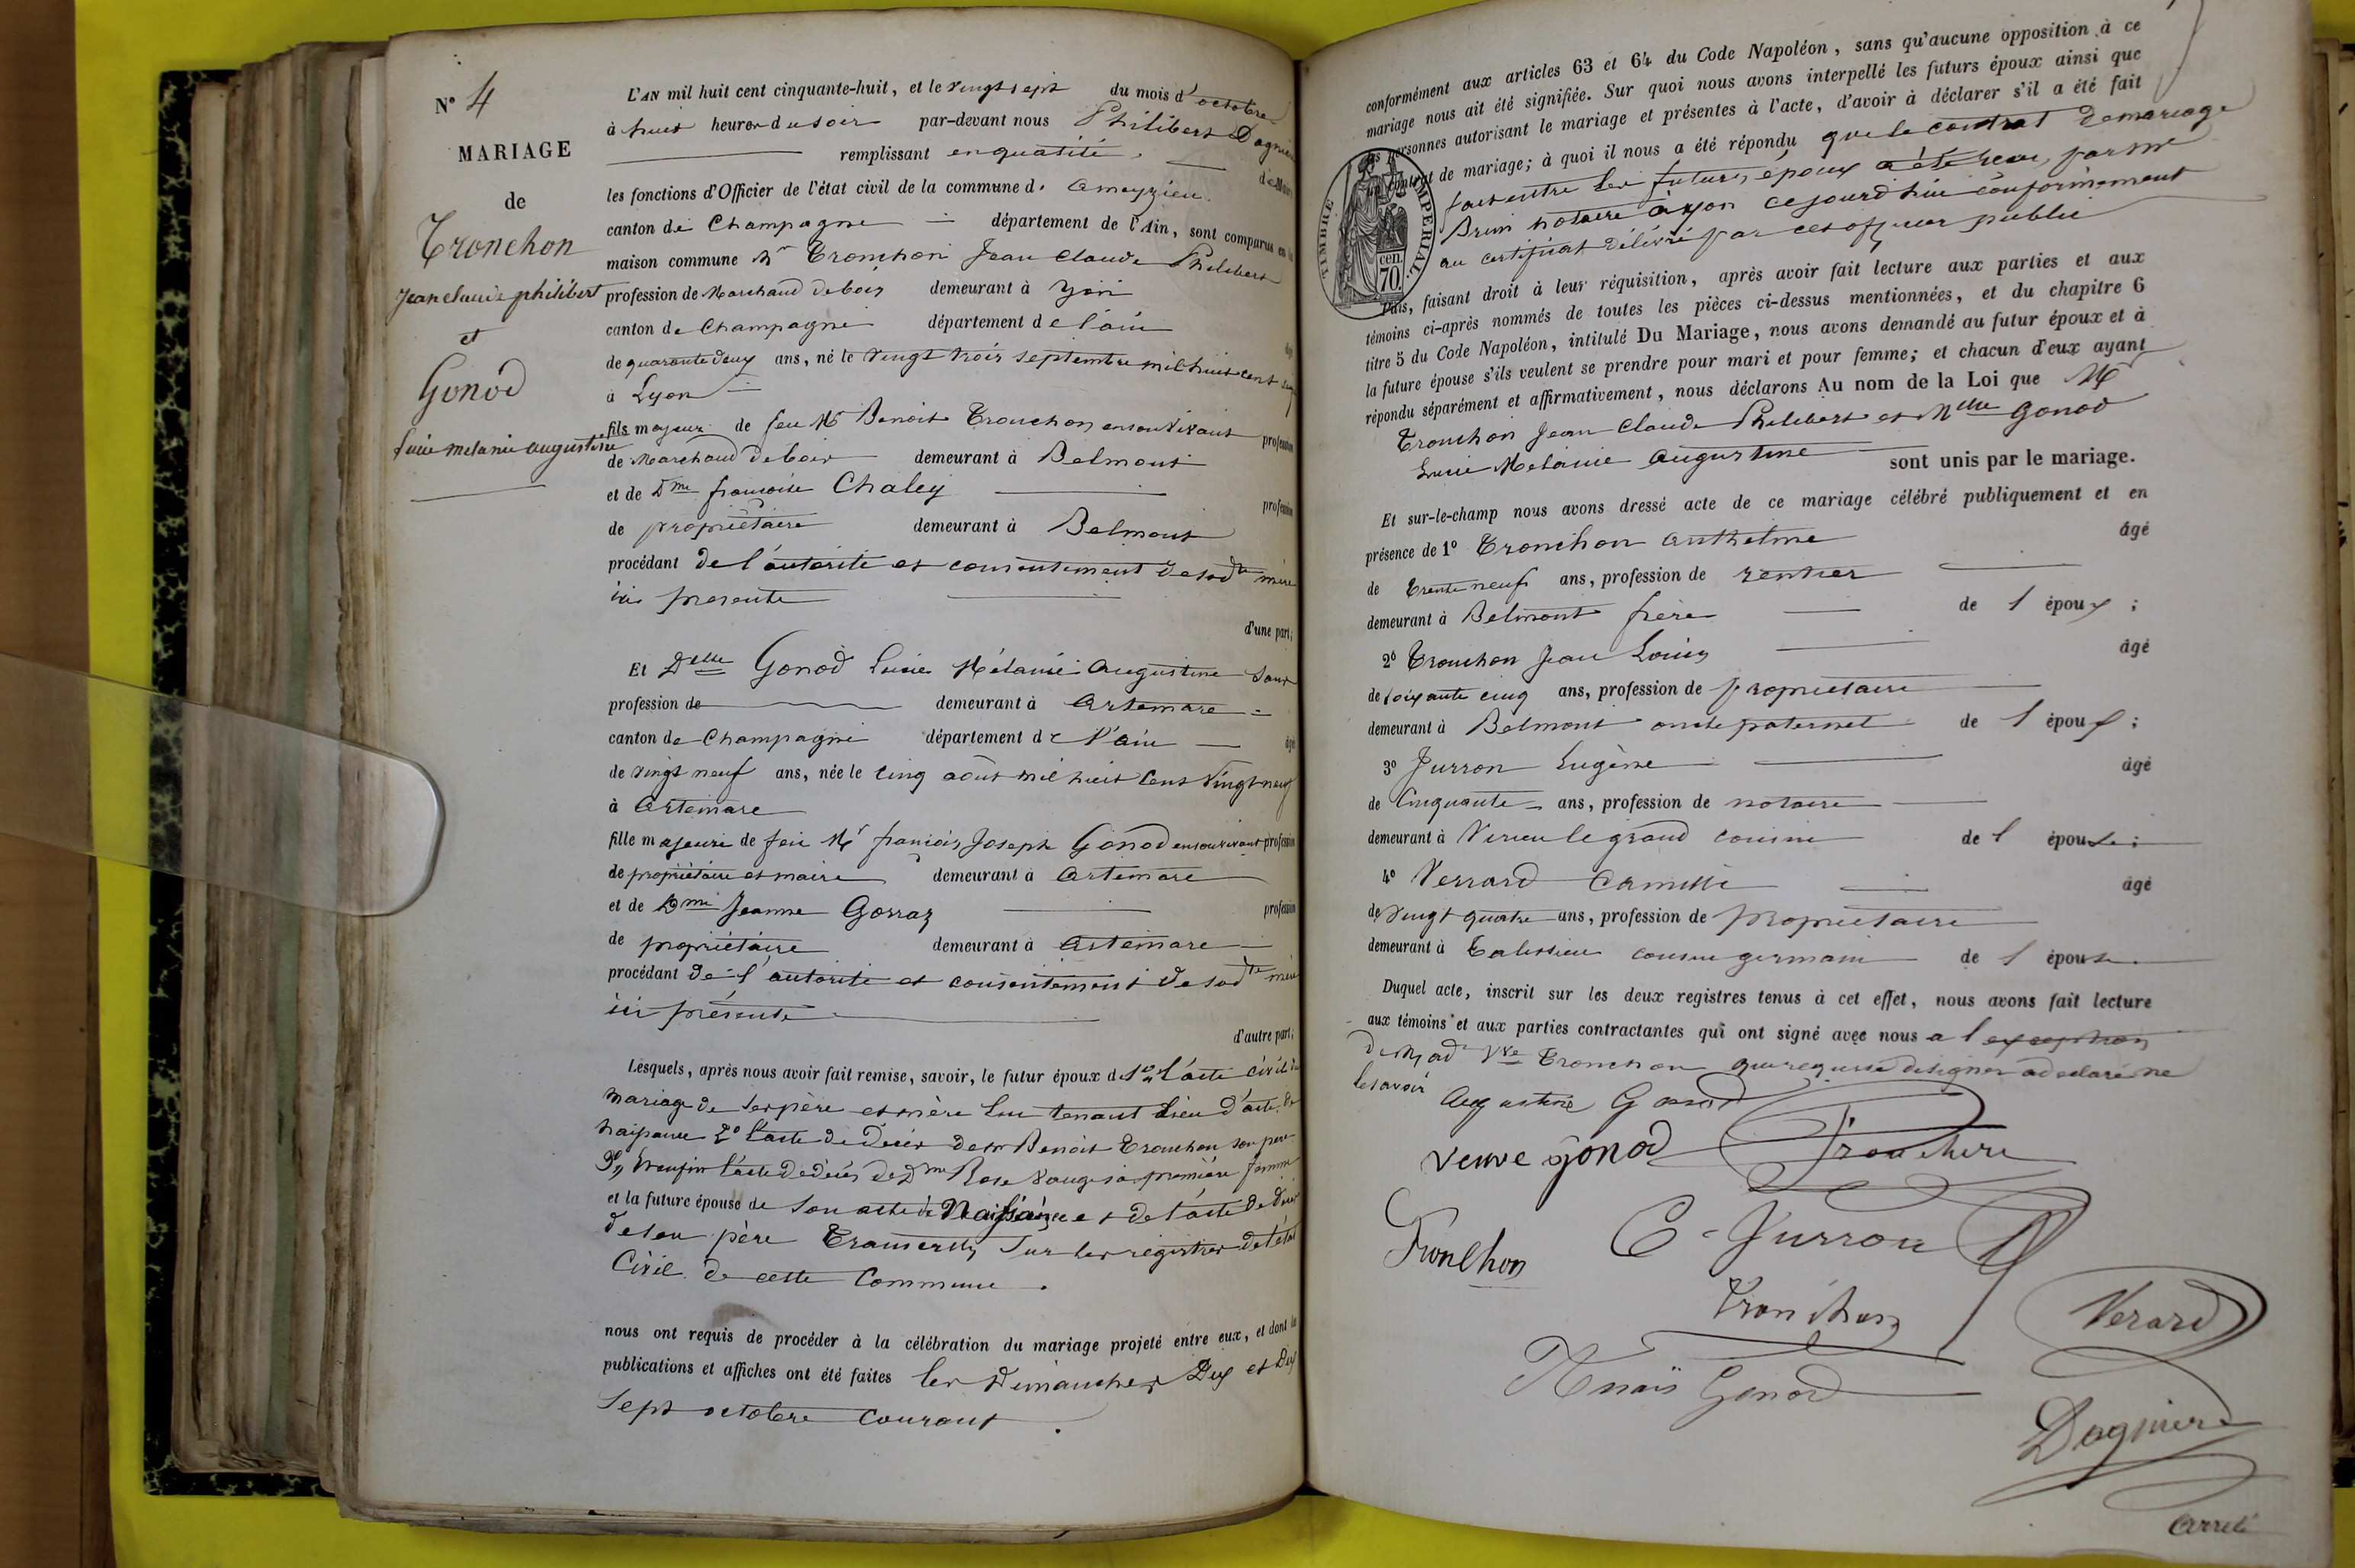 N° 4
MARIAGE
de
Tronchon
Jean claude philibert
et
Gonod
lucie melanie augustine
L'AN mil huit cent cinquante-huit, et le vingt sept du mois d'octobre
à huit heures du soir par-devant nous Philibert Dagnier
remplissant en qualité
de Maire
les fonctions d'Officier de l'état civil de la commune d. ameyzieu
canton de Champagne département de l'Ain, sont comparus en la
maison commune Mr Tronchon Jean Claude Philibert
profession de Marchand de bois demeurant à yon
canton de Champagne département de l'ain
de quarante deux ans, né le vingt trois septembre mil huit cent
à Lyon
fils majeur de feu Mr Benoit Tronchon en son vivant profession
de Marchand de bois demeurant à Belmont
et de Dme francoise Chaley profession
de propriétaire demeurant à Belmont
procédant de l'autorité et consentement de sadte mère
ici presente
d'une part;
Et Delle Gonod Lucie Mélanie Augustine sans
profession de demeurant à Artemare
canton de Champagne département de l'ain âgé
de vingt neuf ans, née le cinq août mil huit cent vingt neuf
à Artemare
fille majeure de feu Mr francois Joseph Gonod en son vivant profession
de propriétaire et maire demeurant à Artemare
et de Dme Jeanne Gorraz profession
de propriétaire demeurant à Artemare
procédant de l'autorité et consentement de sadte mère
ici présente
d'autre part;
Lesquels, après nous avoir fait remise, savoir, le futur époux de 1° l'acte civil de
mariage de ses père et mère lui tenant lieu d'acte de
naissance 2° l'acte de décès de Mr Benoit Tronchon son père
3° enfin l'acte de décès de Dme Rose sa première femme
et la future épouse de son acte de Naissance et de l'acte de décès
de son père Transcrits sur les registres de l'état
Civil de cette Commune.
nous ont requis de procéder à la célébration du mariage projeté entre eux, et dont les
publications et affiches ont été faites les Dimanches Dix et Dix
Sept octobre courant.
conformément aux articles 63 et 64 du Code Napoléon, sans qu'aucune opposition à ce
mariage nous ait été signifiée. Sur quoi nous avons interpellé les futurs époux ainsi que
les personnes autorisant le mariage et présentes à l'acte, d'avoir à déclarer s'il a été fait
un contrat de mariage; à quoi il nous a été répondu que le contrat de mariage
fait entre les futurs époux a été recu par Me
Brun notaire à yon cejourd'hui conformément
au certificat délivré par cet officier public
TIMBRE IMPERIAL
cen.
70
Puis, faisant droit à leur réquisition, après avoir fait lecture aux parties et aux
témoins ci-après nommés de toutes les pièces ci-dessus mentionnées, et du chapitre 6
titre 5 du Code Napoléon, intitulé Du Mariage, nous avons demandé au futur époux et à
la future épouse s'ils veulent se prendre pour mari et pour femme; et chacun d'eux ayant
répondu séparément et affirmativement, nous déclarons Au nom de la Loi que Mr
Tronchon Jean Claude Philibert et Mlle Gonod
Lucie Mélanie Augustine sont unis par le mariage.
Et sur-le-champ nous avons dressé acte de ce mariage célébré publiquement et en
présence de 1° Tronchon Anthelme âgé
de Trente neuf ans, profession de rentier
demeurant à Belmont frère de l époux;
2° Tronchon Jean Louis âgé
de soixante cinq ans, profession de propriétaire
demeurant à Belmont oncle paternel de l époux;
3° Jurron Eugène âgé
de Cinquante ans, profession de notaire
demeurant à Virieu le grand cousin de l épouse;
4° Verrard Camille âgé
de vingt quatre ans, profession de propriétaire
demeurant à Talissieu cousin germain de l épouse.
Duquel acte, inscrit sur les deux registres tenus à cet effet, nous avons fait lecture
aux témoins et aux parties contractantes qui ont signé avec nous a l'exception
de Mad Vve Tronchon qui requise de signer a declaré ne
le savoir
Augustine Gonod
veuve gonod
Tronchon
E Jurron
Tronchon
Verard
Gonod
Dagnier
Arreté